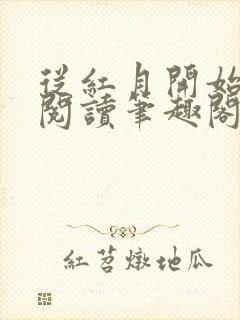 從紅月開始
閱讀筆趣閣
紅苕燉地瓜